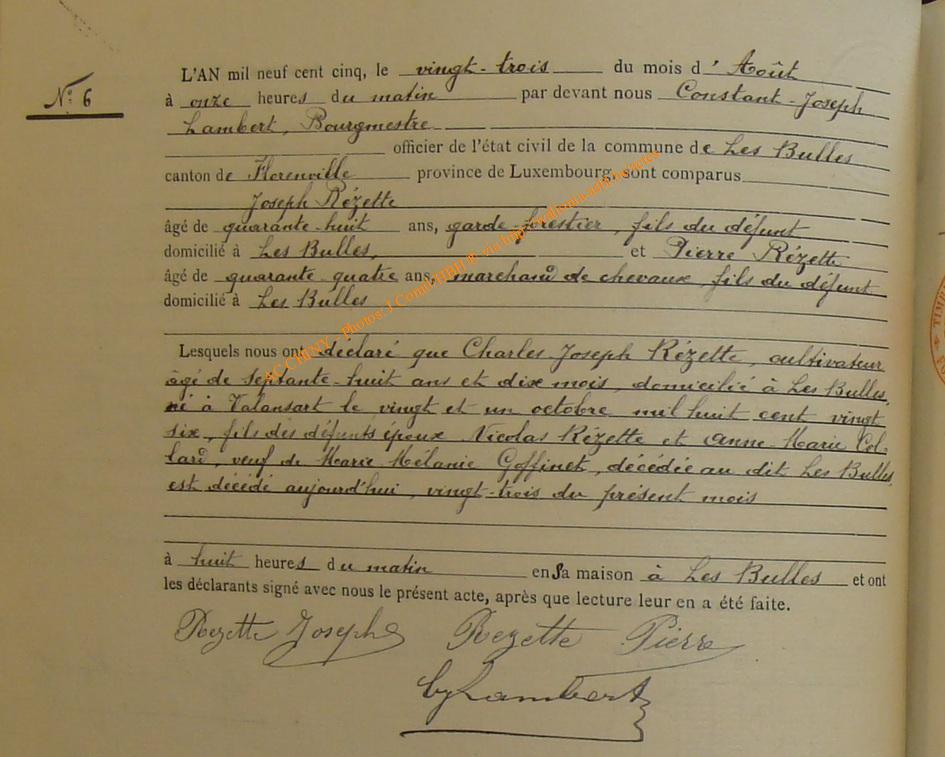 L'AN mil neuf cent cinq, le vingt-trois du mois d'Août
N° 6
à onze heures du matin par devant nous Constant-Joseph
Lambert, Bourgmestre
officier de l'état civil de la commune de Les Bulles
canton de Florenville province de Luxembourg, sont comparus
Joseph Rézette
âgé de quarante-huit ans, garde-forestier, fils du défunt
domicilié à Les Bulles, et Pierre Rézette
âgé de quarante-quatre ans, marchand de chevaux, fils du défunt
domicilié à Les Bulles
Lesquels nous ont déclaré que Charles-Joseph Rézette, cultivateur
âgé de septante-huit ans et dix mois, domicilié à Les Bulles,
né à Valansart le vingt et un octobre mil huit cent vingt
six, fils des défunts époux Nicolas Rézette et Anne Marie Col-
lard, veuf de Marie Mélanie Goffinet, décédée au dit Les Bulles,
est décédé aujourd'hui, vingt-trois du présent mois
à huit heures du matin en sa maison à Les Bulles et ont
les déclarants signé avec nous le présent acte, après que lecture leur en a été faite.
Rezette Joseph Rezette Pierre
Lambert